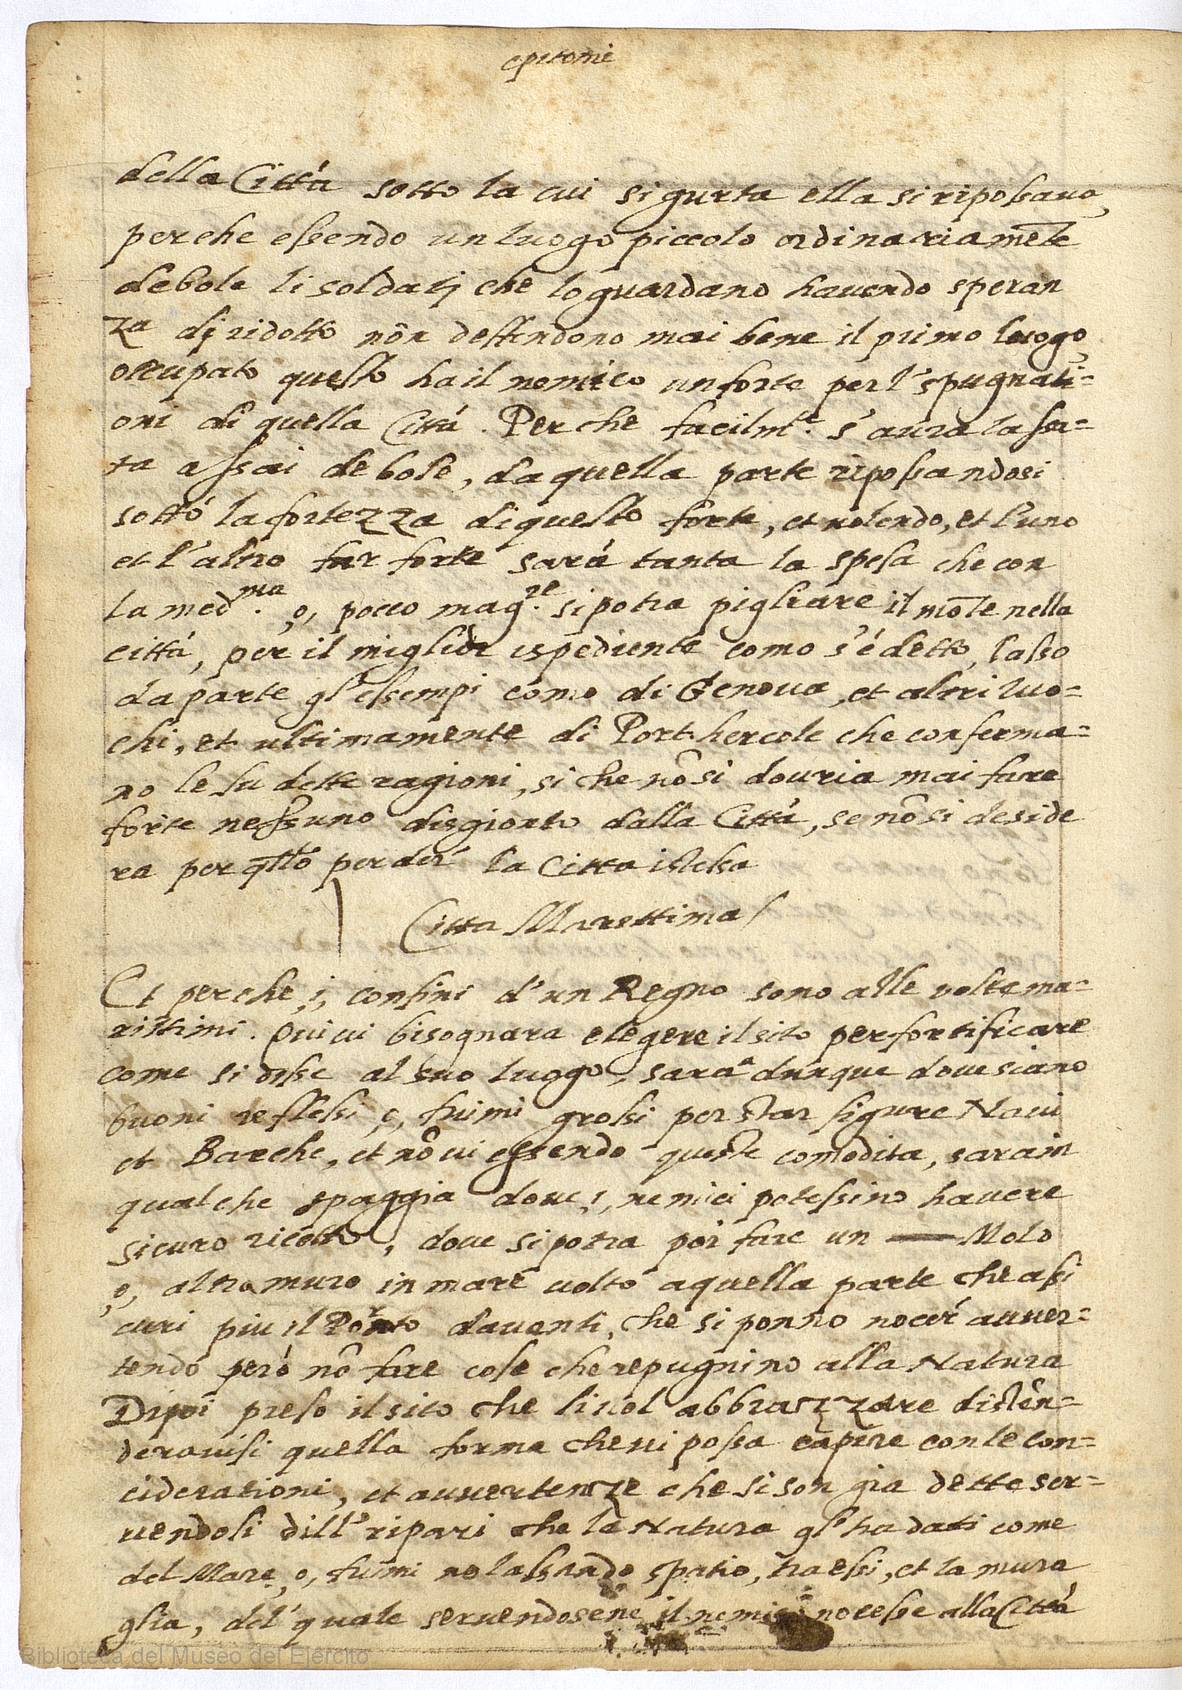 epitomi
della Città sotto la cui sigurta ella si ripossava,
perche essendo un luogo piccolo ordinariam̃te
debole li soldatj che lo guardano havendo speran
za dj ridotto nõn deffendono mai bene il primo luogo
occupato questo ha il nemico un forte per l'espugnati=
oni di quella Città. Perche facilm.te s'aura lassa=
ta assai debole, da quella parte ripossandosi
sotto la fortezza di questo forte, et volendo, et l'uno
et l'altro far forte sarà tanta la spesa che con
la med.ma, o, pocco mag.re si potra pigliare il mõte nella
città, per il miglior ispediente como s'é detto, lasso
da parte gl'essempi como di Genova, et altri luo=
chi, et ultimamente di Port hercole che conferma=
no le su dette ragioni, si che nõ si douria mai fare
forte nessuno disgionto dalla Città, se nõ si deside
ra per q̃llo perder la Citta istessa
Citta Marettima
Et perche, i, confini d'un Regno sono alle volte ma=
rittimi. Quiui bisognara elegere il sito per fortificare
come si disse al suo luogo, sarà dunque doue siano
buoni reflessi, o, fiumi grossi per star sigure Naui
et Barche, et nõ ui essendo queste comodita, sara in
qualche spaggia doue, i, nemici potessino hauere
sicuro ricetto, doue si potra poi fare un — Molo
o, altro muro in mare uolto a quella parte che assi
curi piu il Porto da uenti, che si ponno nocer auuer=
tendo però nõ fare cose che repugnino alla Natura
Dipoi preso il sito che si uol abbrazzare disten=
derauisi quella forma che ui possa capire con le con=
ciderationi, et auuertenze che si son gia dette ser=
uendosi dill'ripari che la Natura gl'ha dati come
del Mare, o, fiumi nõ lassando spatio, tra essi, et la mura
glia, del quale seruendosene il nemico nocesse alla Città
Biblioteca del Museo del Ejército